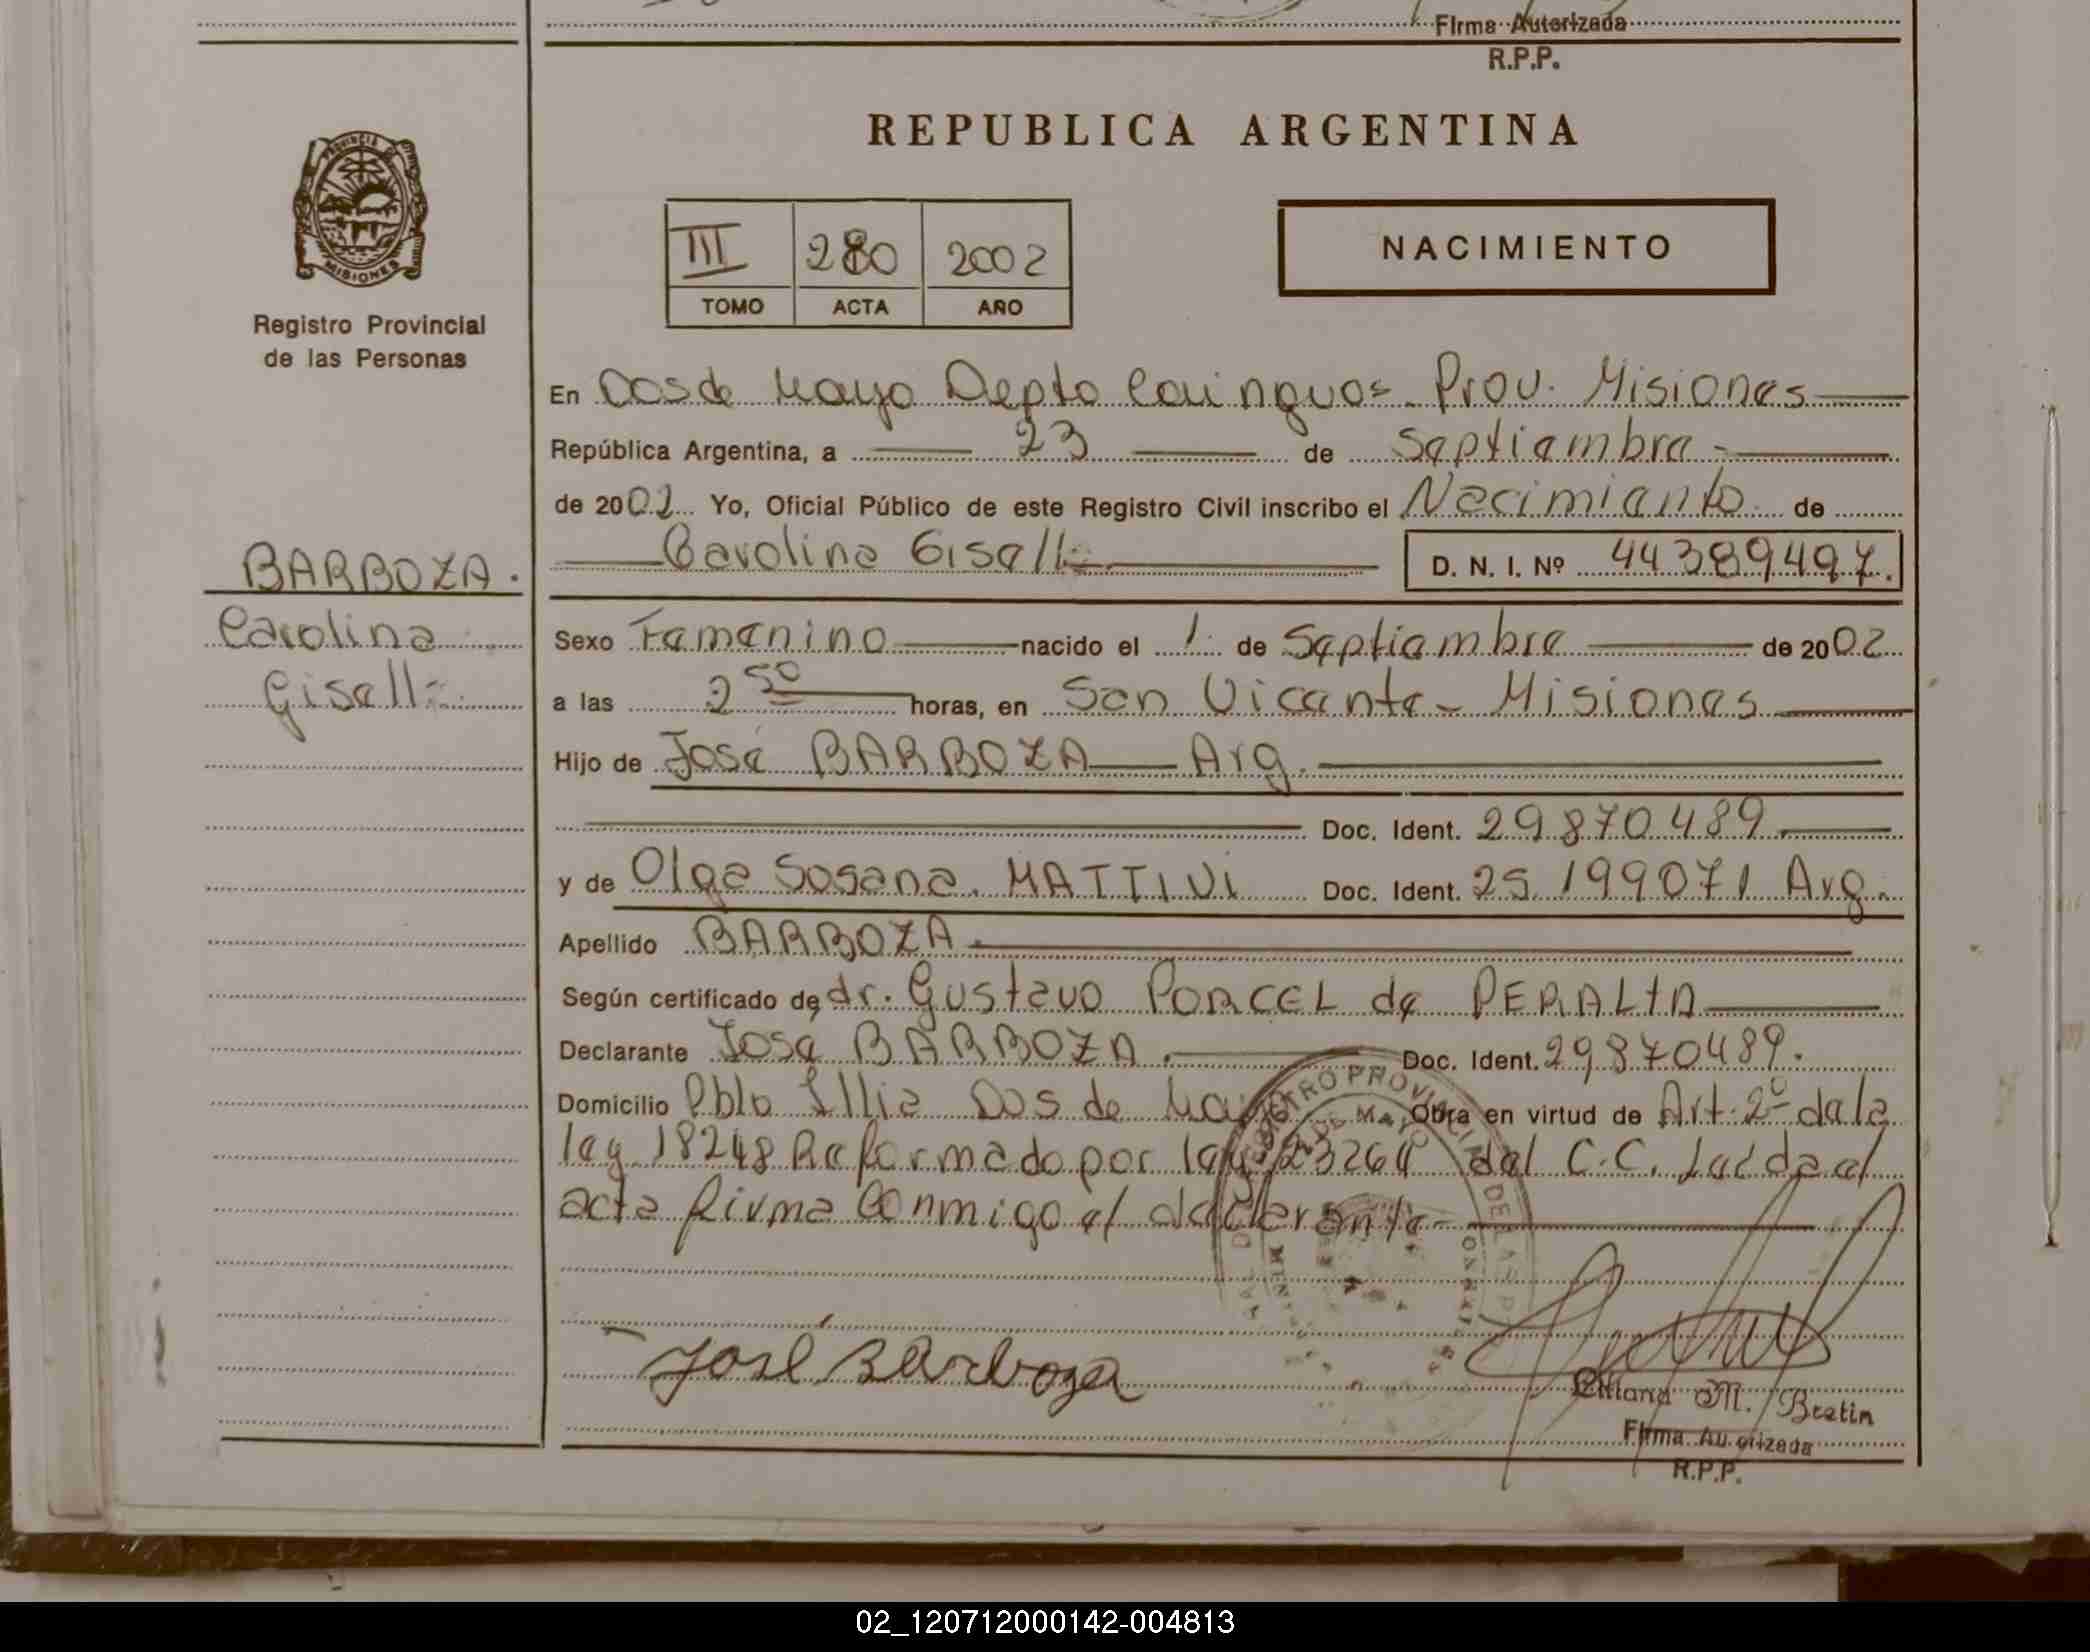 Firma Autorizada
R.P.P.
REPUBLICA ARGENTINA
PROVINCIA DE
MISIONES
Registro Provincial
de las Personas
III 280 2002
TOMO ACTA AÑO
NACIMIENTO
En Dos de Mayo Depto Cainguas Prov. Misiones
República Argentina, a 23 de Septiembre
de 2002 Yo, Oficial Público de este Registro Civil inscribo el Nacimiento de
Carolina Giselle
D. N. I. Nº 44389497.
BARBOZA.
Carolina
Giselle
Sexo Femenino nacido el 1 de Septiembre de 2002
a las 2 50 horas, en San Vicente - Misiones
Hijo de José BARBOZA Arg.
Doc. Ident. 29870489
y de Olga Sosana MATTIVI Doc. Ident. 25.199071 Arg.
Apellido BARBOZA
Según certificado de dr. Gustavo PORCEL de PERALTA
Declarante José BARBOZA. Doc. Ident. 29870489.
Domicilio Pblo Illia Dos de Mayo Obra en virtud de Art. 2º de la
ley 18248 Reformado por ley 23264 del C.C. Leida el
acta firma conmigo el declarante
José Barboza
Liliana M. Bretin
Firma Autorizada
R.P.P.
02_120712000142-004813